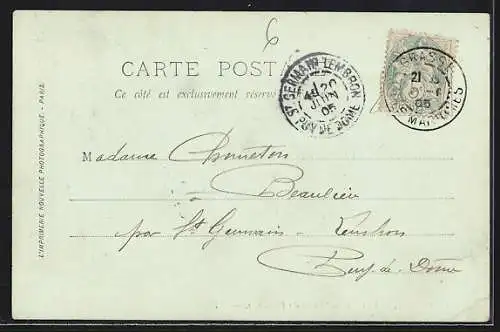 6
CARTE POSTALE
Ce côté est exclusivement réservé
ST GERMAIN-LEMBRON
4E 20
JUIN
05
PUY DE DOME
GRASSE
21
05
MARITIMES
L'IMPRIMERIE NOUVELLE PHOTOGRAPHIQUE - PARIS.
Madame
Beaulieu
par St Germain - Lembron
Puy-de-Dôme